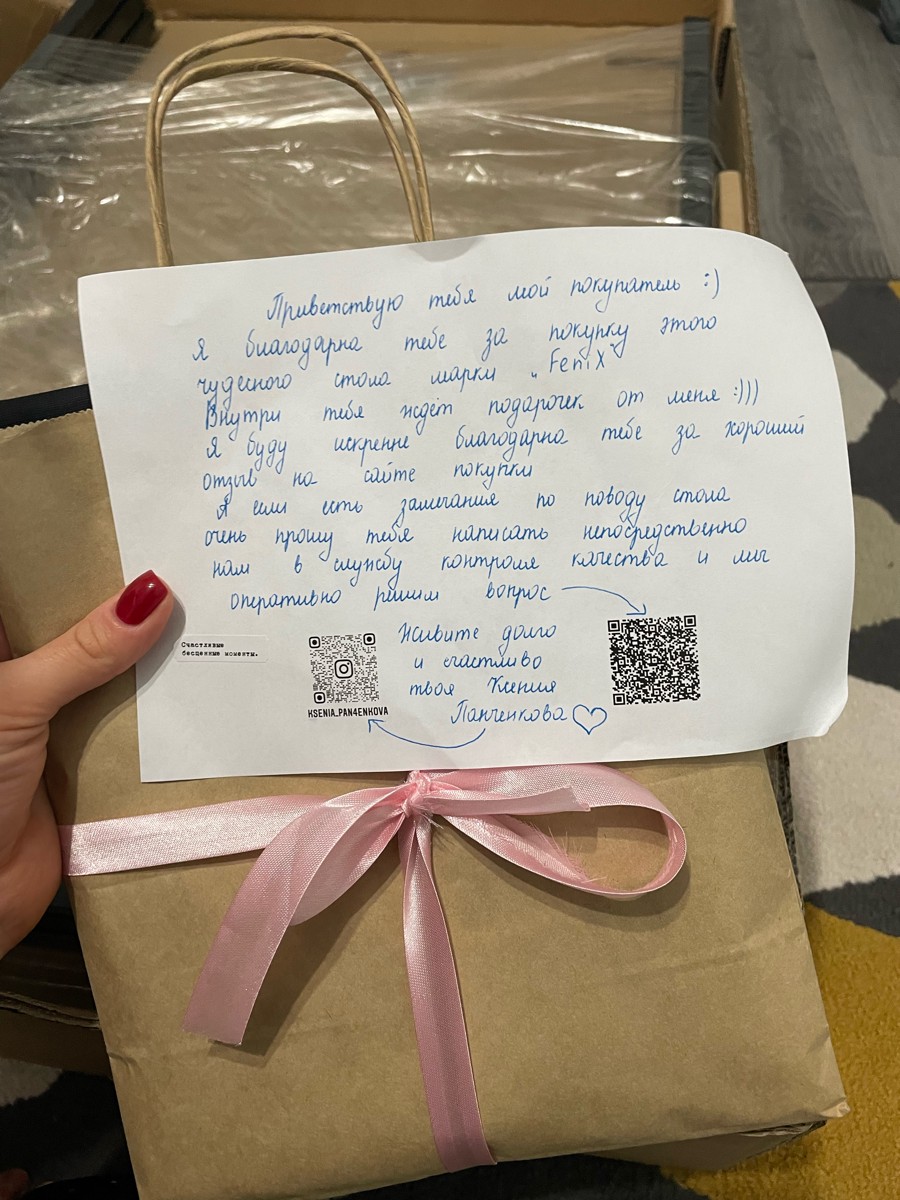 Приветствую тебя мой покупатель :)
Я благодарна тебе за покупку этого
чудесного стола марки „FeniX"
Внутри тебя ждёт подарочек от меня :)))
Я буду искренне благодарна тебе за хороший
отзыв на сайте покупки
А если есть замечания по поводу стола
очень прошу тебя написать непосредственно
нам в службу контроля качества и мы
оперативно решим вопрос
Живите долго
и счастливо
твоя Ксения
Панченкова
Счастливые
бесценные моменты.
KSENIA_PAN4ENKOVA